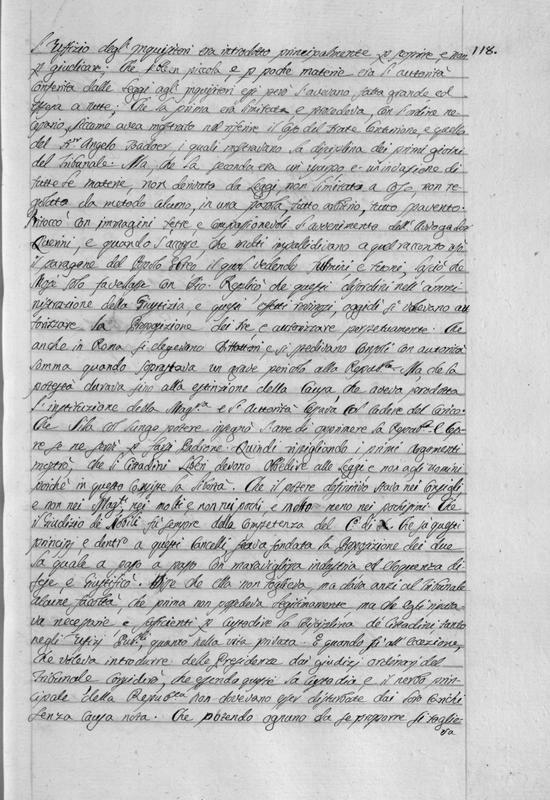 118.
l'Uffizio degl'Inquisitori era introdotto principalmente p punire, e non
p giudicar. Che s'ben piccola, e p poche materie era l'autorità
conferita dalle Leggi agli Inquisitori essi però l'avevano fatta grande ed
estesa a tutte; Che la prima era limitata e procedeva, con l'ordine ne-
cessario, siccome avea mostrato nel riferire il Caso del Frate Contarini, e quello
del Kr. Angelo Badoer i quali mostravano la disciplina dei primi giorni
del Tribunale. Ma, che la seconda era un usurpo e inondazione di
tutte le materie, non derivata da Leggi, non limitata a Casi, non re-
golata da metodo alcuno, in una parola tutto arbitrio, tutto spavento.
Ritoccò con immagini tetre e compassionevoli l'avvenimento dell'Avogador
Querini, e quando s'accorse che molti impallidivano a quel racconto usò
il paragone del Popolo Ebreo, il qual vedendo fulmini e tuoni, lasciò che
Mosè solo favellasse con Dio. Replicò che questi disordini nell'ammi-
nistrazione della Giustizia, e questi effetti oggidì si volevano au-
torizzare la Proposizione dei tre e autorizzare perpetuamente. Che
anche in Roma si elegevano Dittatori, e si spedivano Consoli con autorità
somma quando soprastava un grave pericolo alla Repubca. Ma, che la
potestà durava sino alla estinzione della Causa che aveva prodotta
l'instituzione della Magra e l'Autorità spirava col cadere del Carico.
Che Silla col lungo potere insegnò l'arte di opprimere la Repuba. e Cesa-
re se ne servì p farsi Padrone. Quindi ripigliando i primi argomenti
mostrò, che li Cittadini liberi devono obbedire alle Leggi e non agli uomini
poichè in questo consiste la libertà. Che il potere definitivo stava nei Consigli
e non nei Magti. nei molti e non nei pochi, e molto meno nei pochissimi. Che
il Giudizio de' Nobili fù sempre della Competenza del C. di X. Che sù questi
principj, e dentro a questi Cancelli stava fondata la Proposizione dei due
la quale a passo a passo con maravigliosa industria ed eloquenza di-
fese e giustificò. Disse che ella non toglieva, ma dava anzi al Tribunale
alcune facoltà, che prima non possedeva legitimamente, ma che egli riputa-
va necessarie e sufficienti p custodire la disciplina de' Cittadini tanto
negli Uffizj Pubci. quanto nella vita privata. E quando fù all'Eccezione,
che voleva introdurre delle Presidenze dai giudizj ordinarj del
Tribunale considerò, che essendo queste la Custodia e il nerbo prin-
cipale della Repubca non dovevano esser disturbate dai loro Carichi
senza Causa nota. Che potendo ognuno da se proporre si toglie-
va